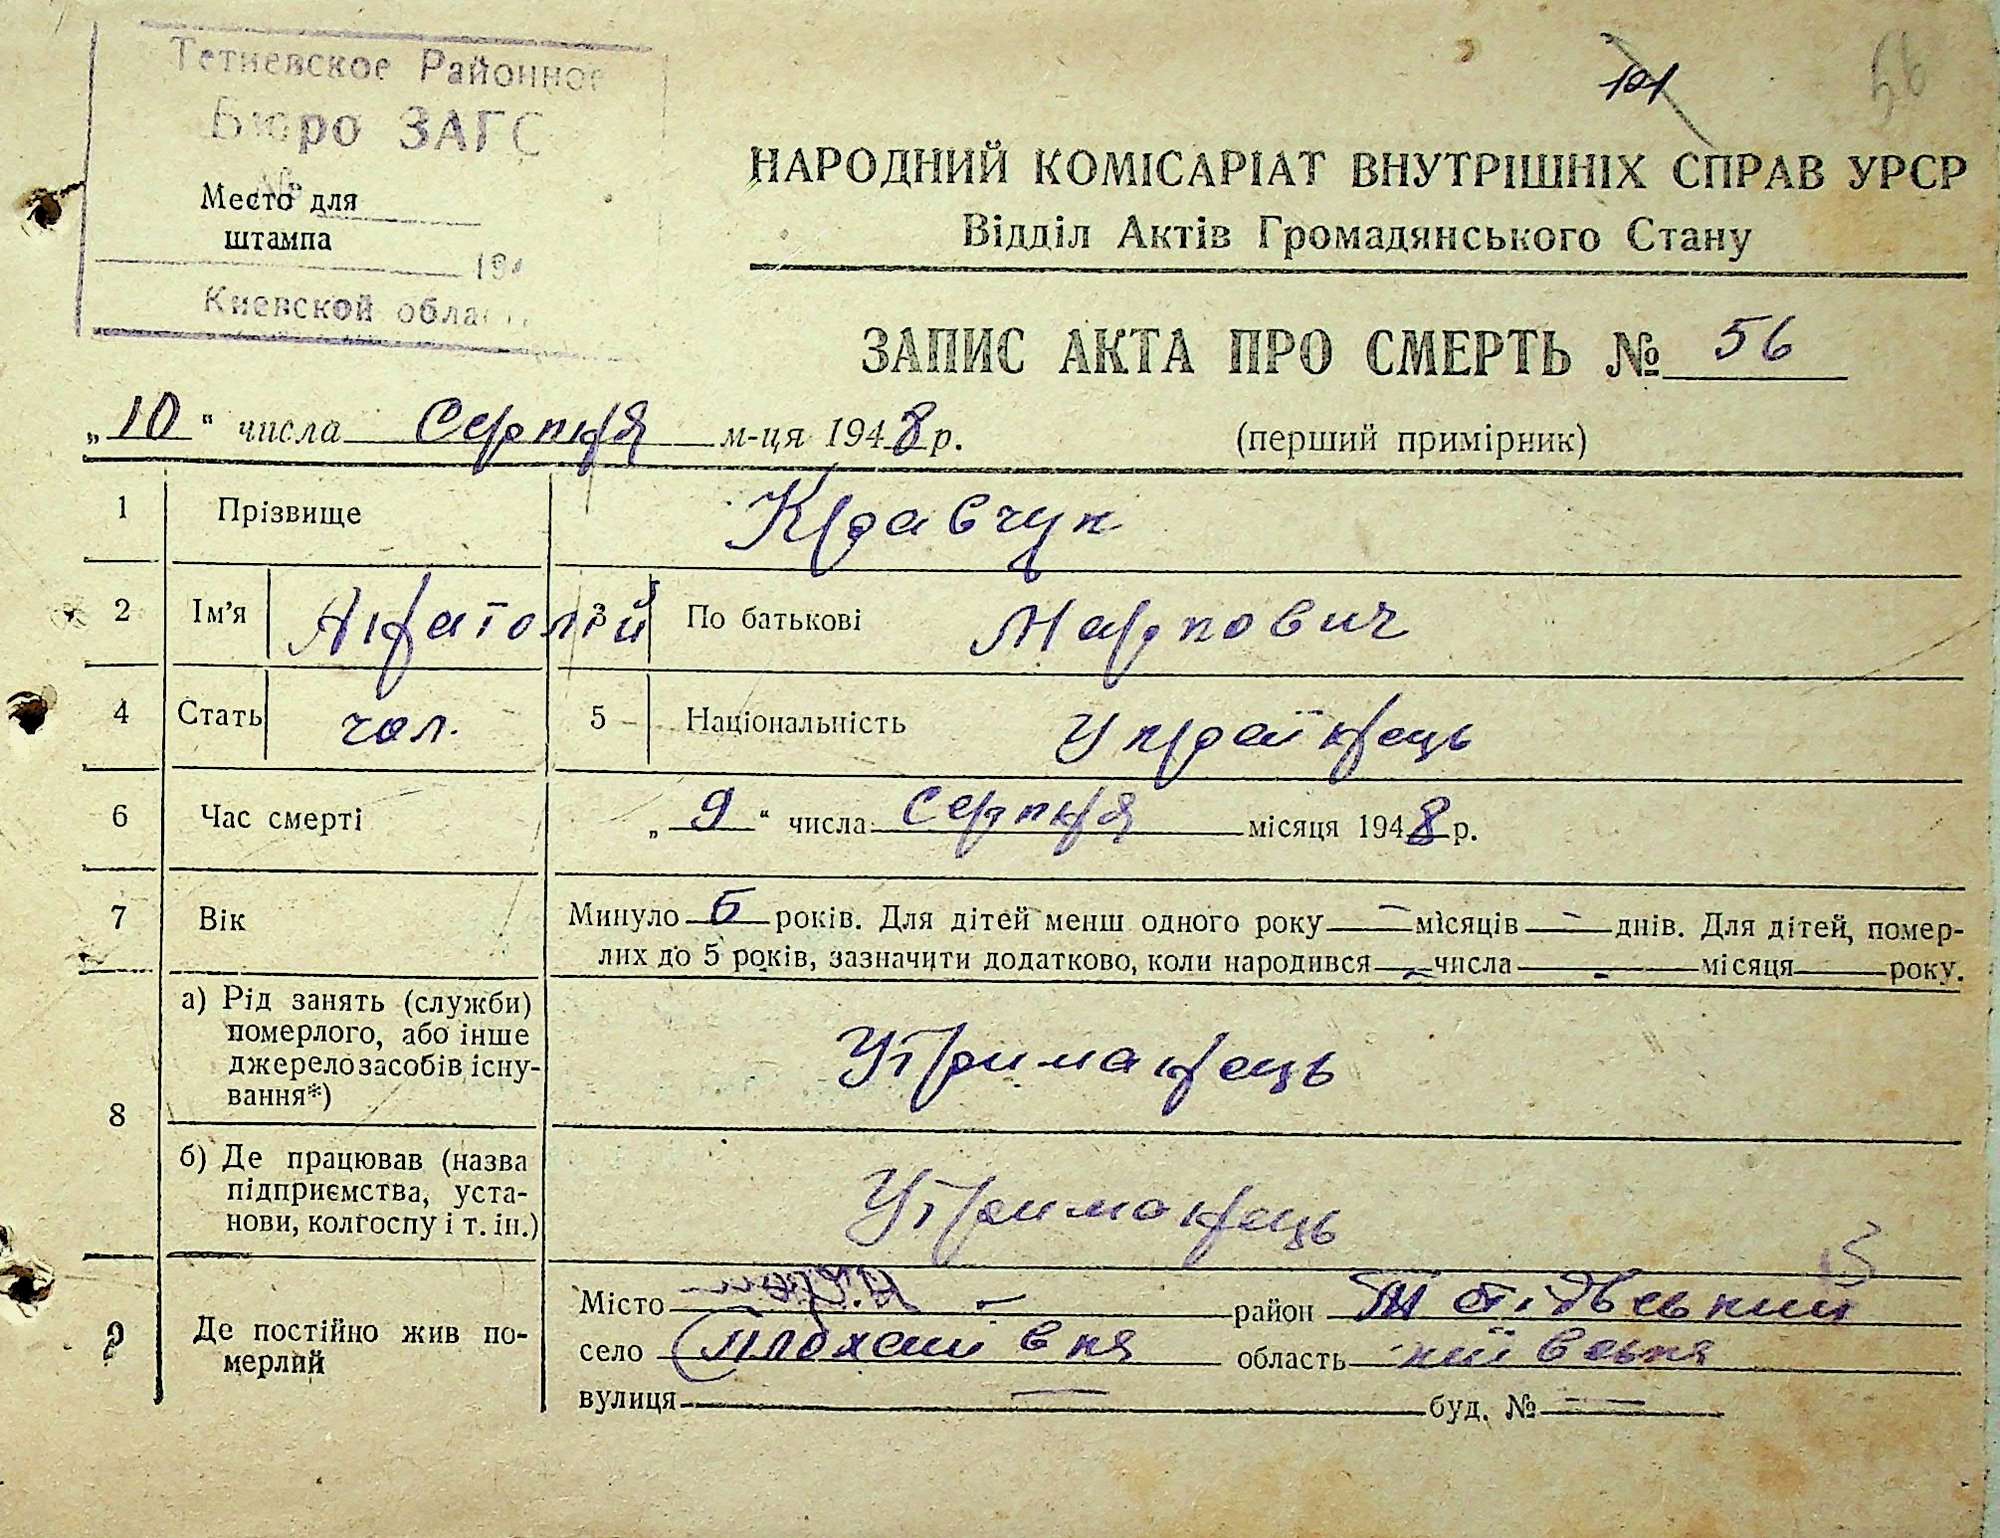 Тетиевское Районное
Бюро ЗАГС
№
Место для
штампа
194
Киевской област
101
56
НАРОДНИЙ КОМІСАРІАТ ВНУТРІШНІХ СПРАВ УРСР
Відділ Актів Громадянського Стану
ЗАПИС АКТА ПРО СМЕРТЬ № 56
„10“ числа Серпня м-ця 1948 р. (перший примірник)
1 Прізвище Кравчук
2 Ім'я Анатолій 3 По батькові Маркович
4 Стать чол. 5 Національність Українець
6 Час смерті „9“ числа Серпня місяця 1948 р.
7 Вік Минуло 5 років. Для дітей менш одного року — місяців — днів. Для дітей, помер-
лих до 5 років, зазначити додатково, коли народився — числа — місяця року.
8 а) Рід занять (служби)
померлого, або інше
джерело засобів існу-
вання*)
Утриманець
б) Де працював (назва
підприємства, уста-
нови, колгоспу і т. ін.)
Утриманець
9 Де постійно жив по-
мерлий
Місто — район Тетіївський
село область Київська
вулиця — буд. № —